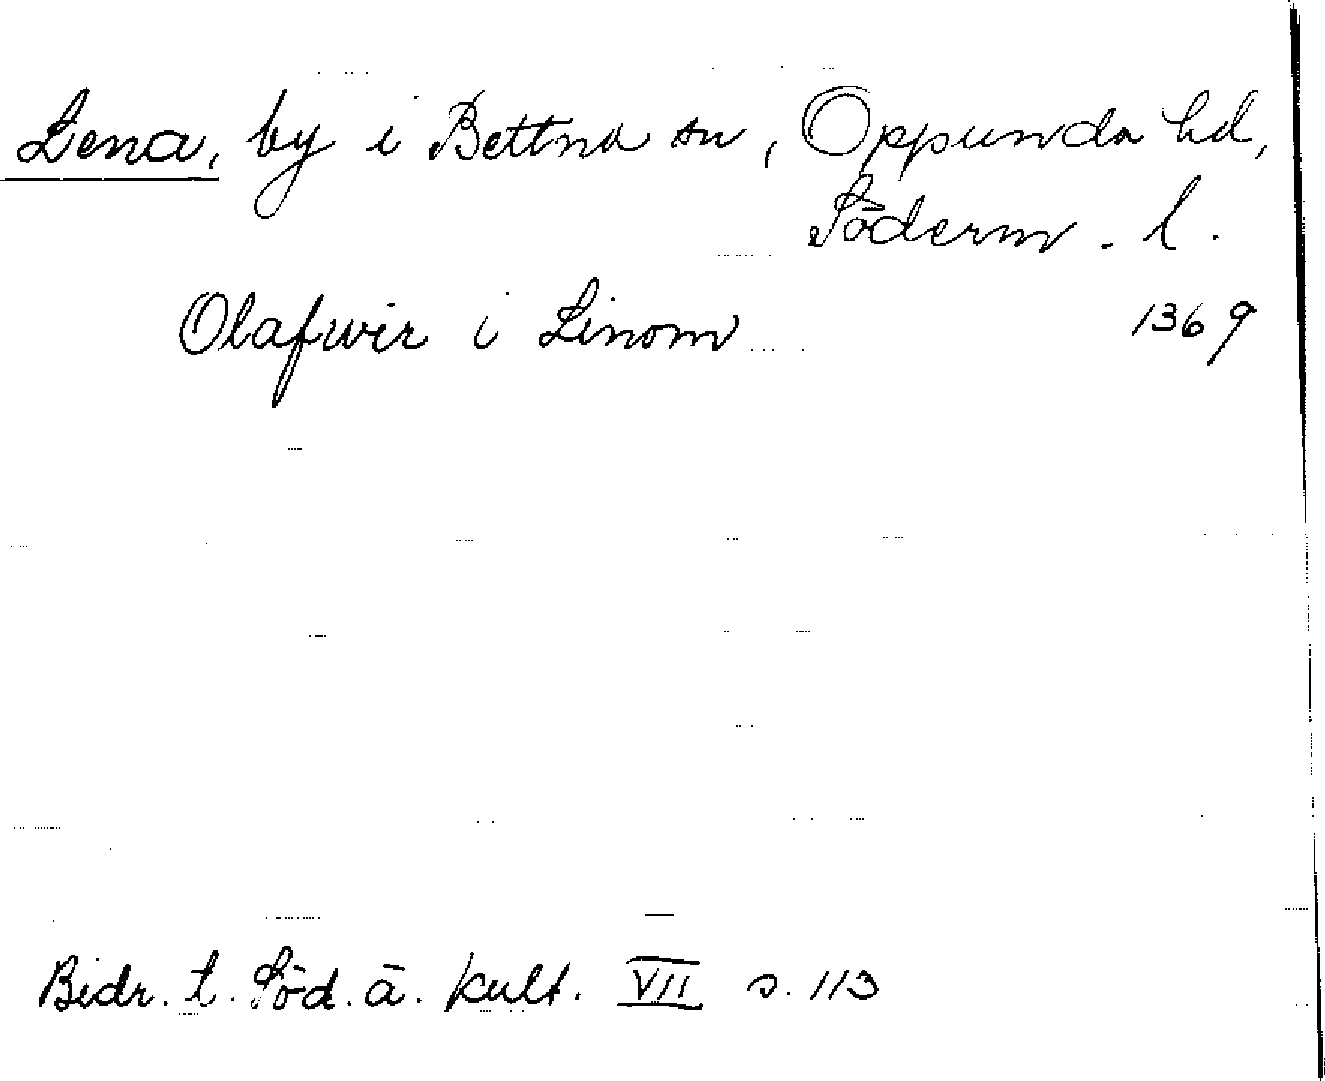 Lena, by i Bettna sn, Oppunda hd,
Söderm. l.
Olafwir i Linom 1369
Bidr. t. Söd. ä. kult. VII s. 113